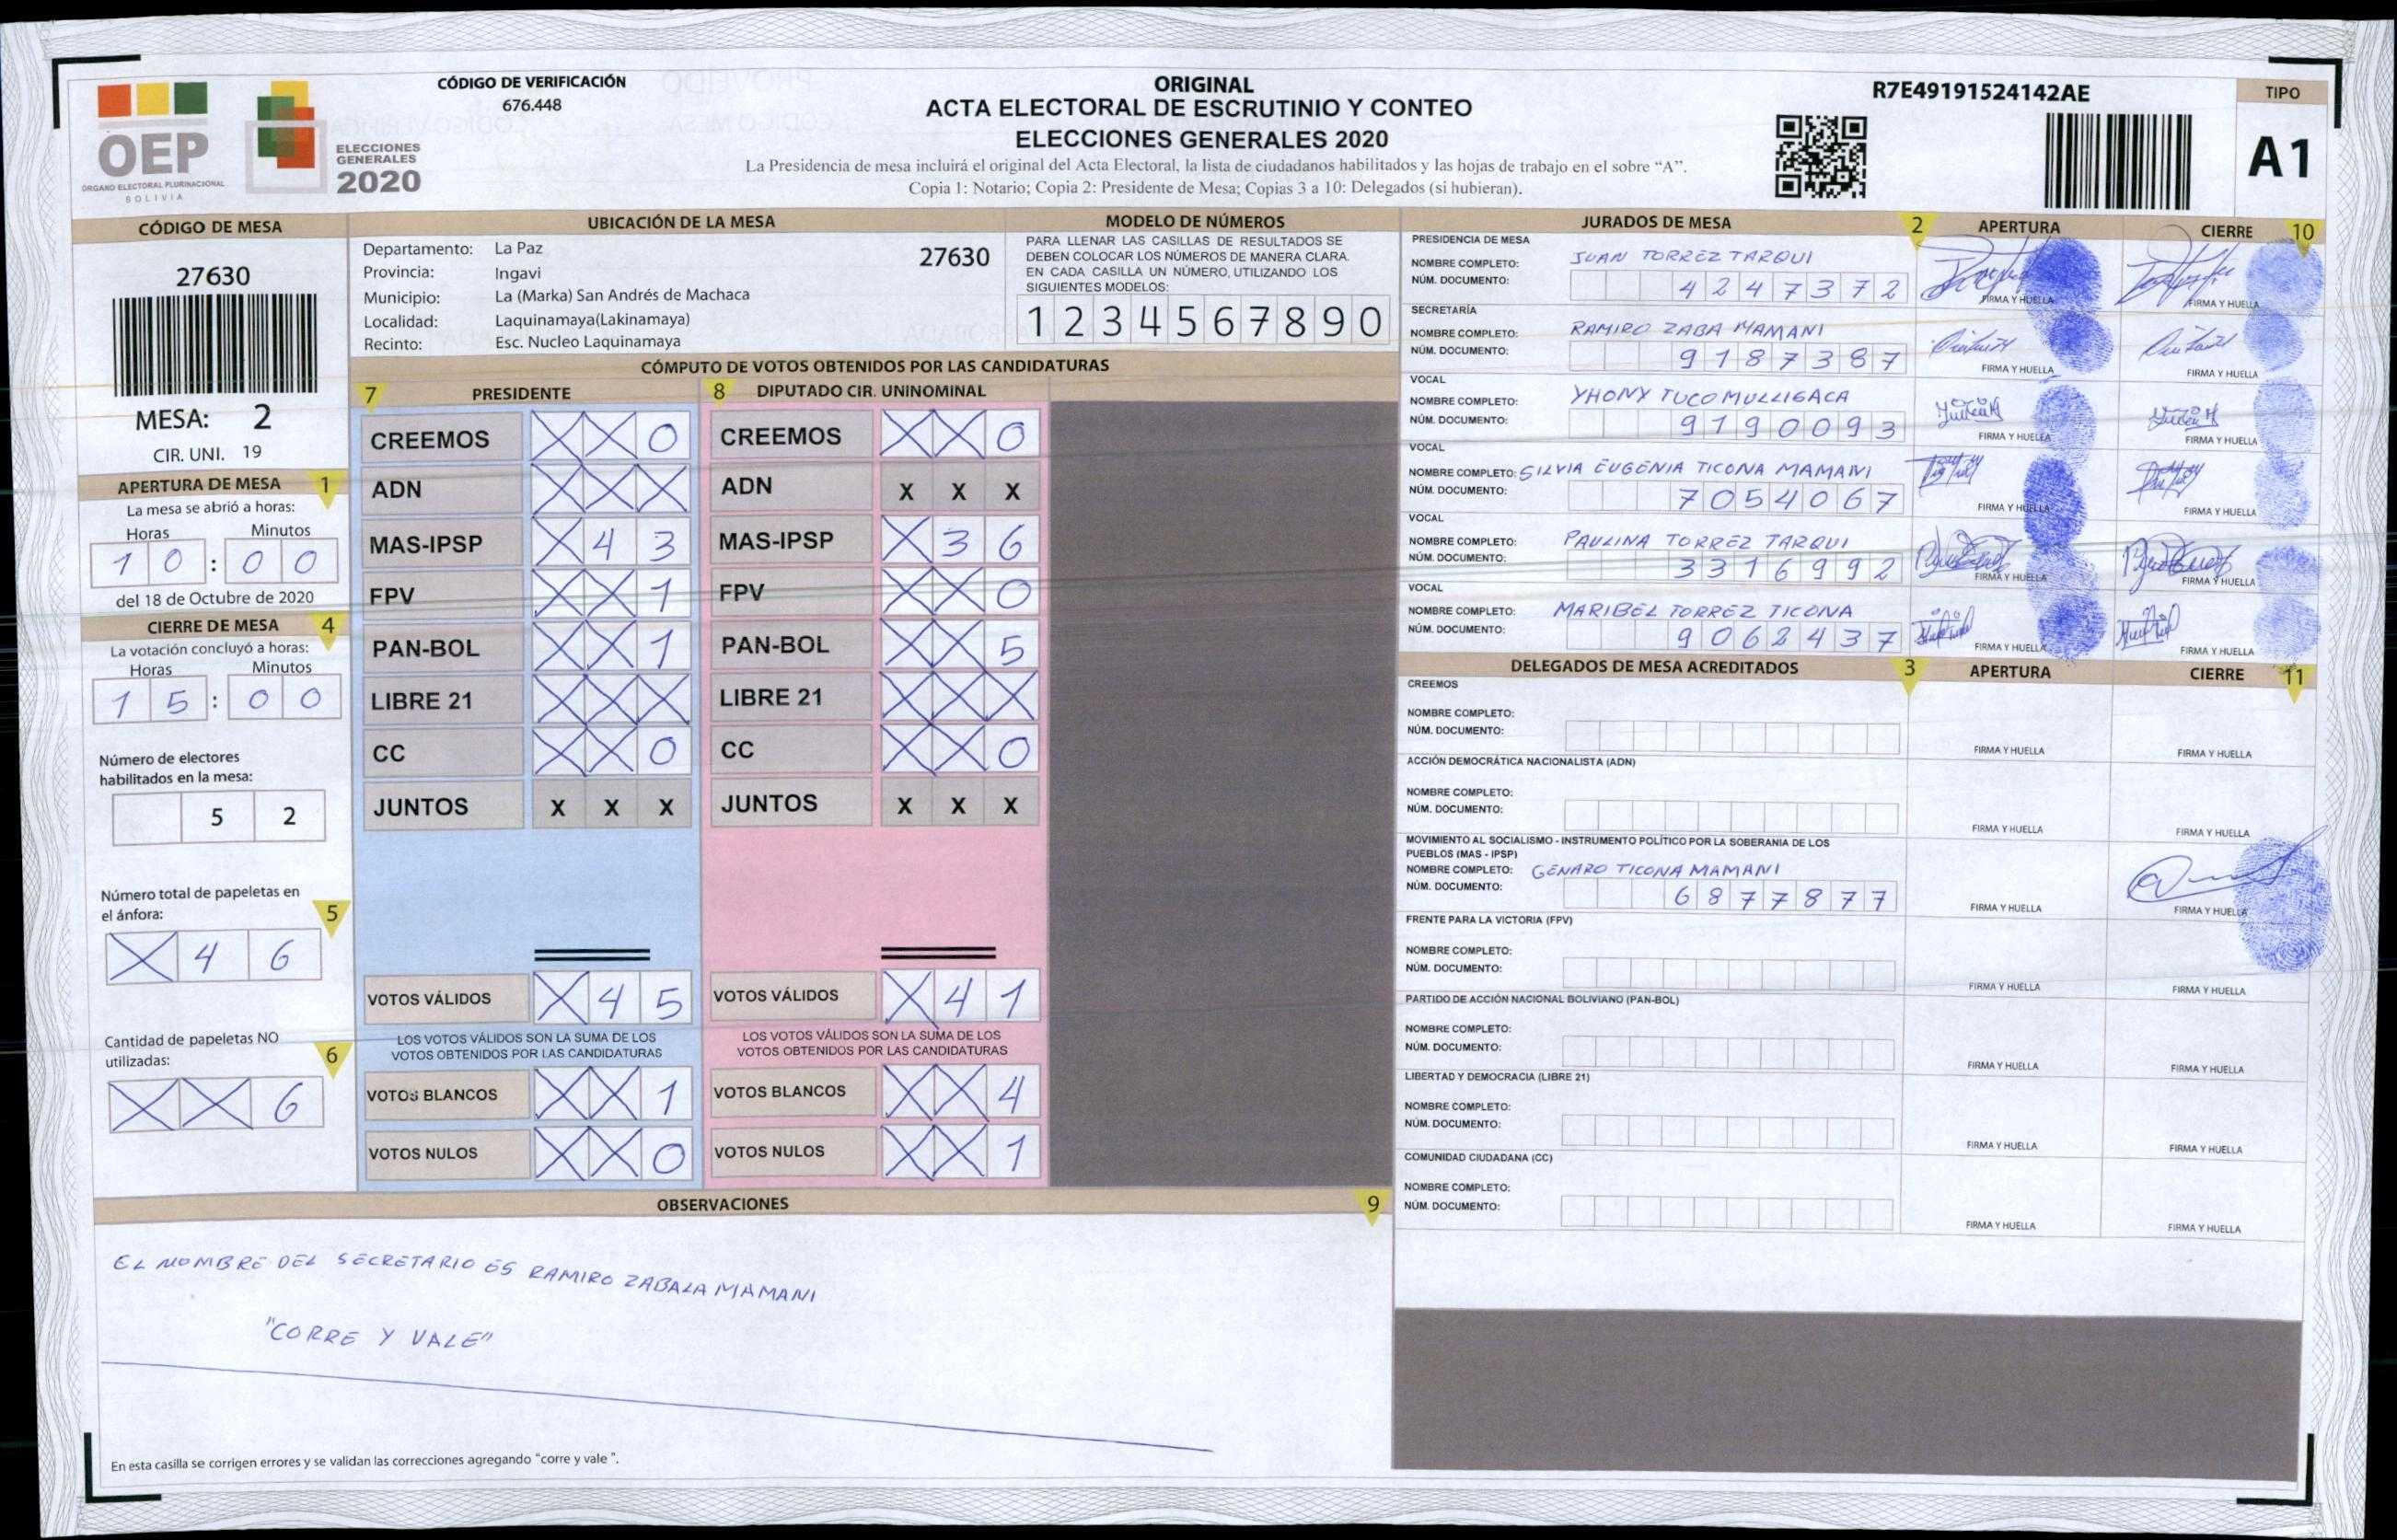 OEP
ÓRGANO ELECTORAL PLURINACIONAL
BOLIVIA
ELECCIONES
GENERALES
2020
CÓDIGO DE VERIFICACIÓN
676.448
ORIGINAL
ACTA ELECTORAL DE ESCRUTINIO Y CONTEO
ELECCIONES GENERALES 2020
La Presidencia de mesa incluirá el original del Acta Electoral, la lista de ciudadanos habilitados y las hojas de trabajo en el sobre “A”.
Copia 1: Notario; Copia 2: Presidente de Mesa; Copias 3 a 10: Delegados (si hubieran).
R7E49191524142AE
TIPO
A1
CÓDIGO DE MESA
27630
MESA: 2
CIR. UNI. 19
APERTURA DE MESA 1
La mesa se abrió a horas:
Horas Minutos
1 0 : 0 0
del 18 de Octubre de 2020
CIERRE DE MESA 4
La votación concluyó a horas:
Horas Minutos
1 5 : 0 0
Número de electores
habilitados en la mesa:
5 2
Número total de papeletas en
el ánfora: 5
X 4 6
Cantidad de papeletas NO
utilizadas: 6
X X 6
UBICACIÓN DE LA MESA
Departamento: La Paz 27630
Provincia: Ingavi
Municipio: La (Marka) San Andrés de Machaca
Localidad: Laquinamaya(Lakinamaya)
Recinto: Esc. Nucleo Laquinamaya
MODELO DE NÚMEROS
PARA LLENAR LAS CASILLAS DE RESULTADOS SE
DEBEN COLOCAR LOS NÚMEROS DE MANERA CLARA.
EN CADA CASILLA UN NÚMERO, UTILIZANDO LOS
SIGUIENTES MODELOS:
1 2 3 4 5 6 7 8 9 0
CÓMPUTO DE VOTOS OBTENIDOS POR LAS CANDIDATURAS
7 PRESIDENTE
CREEMOS X X 0
ADN X X X
MAS-IPSP X 4 3
FPV X X 1
PAN-BOL X X 1
LIBRE 21 X X X
CC X X 0
JUNTOS X X X
VOTOS VÁLIDOS X 4 5
LOS VOTOS VÁLIDOS SON LA SUMA DE LOS
VOTOS OBTENIDOS POR LAS CANDIDATURAS
VOTOS BLANCOS X X 1
VOTOS NULOS X X 0
8 DIPUTADO CIR. UNINOMINAL
CREEMOS X X 0
ADN X X X
MAS-IPSP X 3 6
FPV X X 0
PAN-BOL X X 5
LIBRE 21 X X X
CC X X 0
JUNTOS X X X
VOTOS VÁLIDOS X 4 1
LOS VOTOS VÁLIDOS SON LA SUMA DE LOS
VOTOS OBTENIDOS POR LAS CANDIDATURAS
VOTOS BLANCOS X X 4
VOTOS NULOS X X 1
OBSERVACIONES 9
EL NOMBRE DEL SECRETARIO ES RAMIRO ZABALA MAMANI
"CORRE Y VALE"
En esta casilla se corrigen errores y se validan las correcciones agregando "corre y vale ".
JURADOS DE MESA 2 APERTURA CIERRE 10
PRESIDENCIA DE MESA
NOMBRE COMPLETO: JUAN TORREZ TARQUI
NÚM. DOCUMENTO: 4 2 4 7 3 7 2
FIRMA Y HUELLA FIRMA Y HUELLA
SECRETARÍA
NOMBRE COMPLETO: RAMIRO ZABA MAMANI
NÚM. DOCUMENTO: 9 1 8 7 3 8 7
FIRMA Y HUELLA FIRMA Y HUELLA
VOCAL
NOMBRE COMPLETO: YHONY TUCO MULLIGACA
NÚM. DOCUMENTO: 9 1 9 0 0 9 3
FIRMA Y HUELLA FIRMA Y HUELLA
VOCAL
NOMBRE COMPLETO: SILVIA EUGENIA TICONA MAMANI
NÚM. DOCUMENTO: 7 0 5 4 0 6 7
FIRMA Y HUELLA FIRMA Y HUELLA
VOCAL
NOMBRE COMPLETO: PAULINA TORREZ TARQUI
NÚM. DOCUMENTO: 3 3 1 6 9 9 2
FIRMA Y HUELLA FIRMA Y HUELLA
VOCAL
NOMBRE COMPLETO: MARIBEL TORREZ TICONA
NÚM. DOCUMENTO: 9 0 6 2 4 3 7
FIRMA Y HUELLA FIRMA Y HUELLA
DELEGADOS DE MESA ACREDITADOS 3 APERTURA CIERRE 11
CREEMOS
NOMBRE COMPLETO:
NÚM. DOCUMENTO:
FIRMA Y HUELLA FIRMA Y HUELLA
ACCIÓN DEMOCRÁTICA NACIONALISTA (ADN)
NOMBRE COMPLETO:
NÚM. DOCUMENTO:
FIRMA Y HUELLA FIRMA Y HUELLA
MOVIMIENTO AL SOCIALISMO - INSTRUMENTO POLÍTICO POR LA SOBERANIA DE LOS
PUEBLOS (MAS - IPSP)
NOMBRE COMPLETO: GENARO TICONA MAMANI
NÚM. DOCUMENTO: 6 8 7 7 8 7 7
FIRMA Y HUELLA FIRMA Y HUELLA
FRENTE PARA LA VICTORIA (FPV)
NOMBRE COMPLETO:
NÚM. DOCUMENTO:
FIRMA Y HUELLA FIRMA Y HUELLA
PARTIDO DE ACCIÓN NACIONAL BOLIVIANO (PAN-BOL)
NOMBRE COMPLETO:
NÚM. DOCUMENTO:
FIRMA Y HUELLA FIRMA Y HUELLA
LIBERTAD Y DEMOCRACIA (LIBRE 21)
NOMBRE COMPLETO:
NÚM. DOCUMENTO:
FIRMA Y HUELLA FIRMA Y HUELLA
COMUNIDAD CIUDADANA (CC)
NOMBRE COMPLETO:
NÚM. DOCUMENTO:
FIRMA Y HUELLA FIRMA Y HUELLA